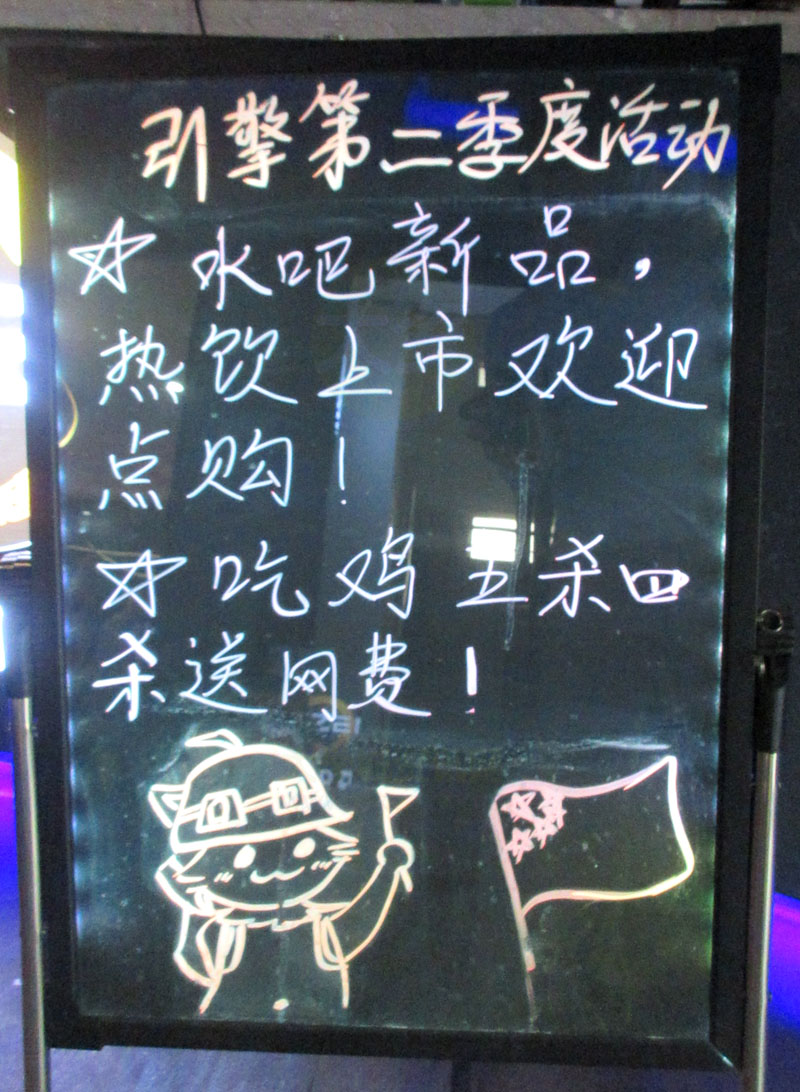 引擎第二季度活动
☆ 水吧新品，
热饮上市欢迎
点购！
☆ 吃鸡五杀四
杀送网费！